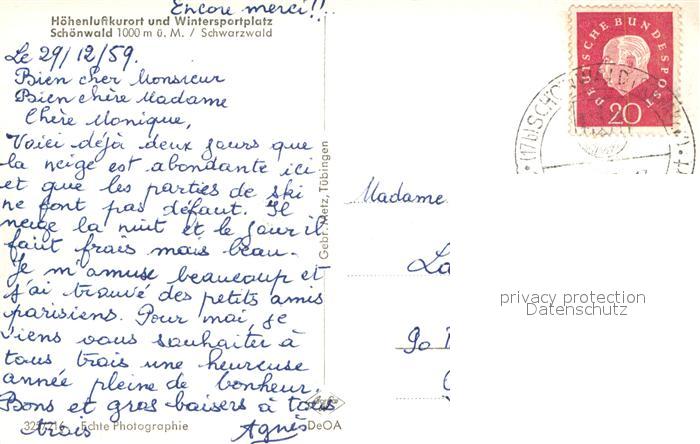 Encore merci!!
Höhenluftkurort und Wintersportplatz
Schönwald 1000 m ü. M. / Schwarzwald
Le 29/12/59.
Bien cher Monsieur
Bien chère Madame
Chère Monique,
Voici déjà deux jours que
la neige est abondante ici
et que les parties de ski
ne font pas défaut. Il
neige la nuit et le jour il
fait frais mais beau.
Je m'amuse beaucoup et
j'ai trouvé des petits amis
parisiens. Pour moi, je
viens vous souhaiter à
tous trois une heureuse
année pleine de bonheur.
Bons et gros baisers à tous
trois Agnès
Echte Photographie DeOA
Gebr. Metz, Tübingen
DEUTSCHE BUNDESPOST
20
(17b) SCHÖ
Madame
La
privacy protection
Datenschutz